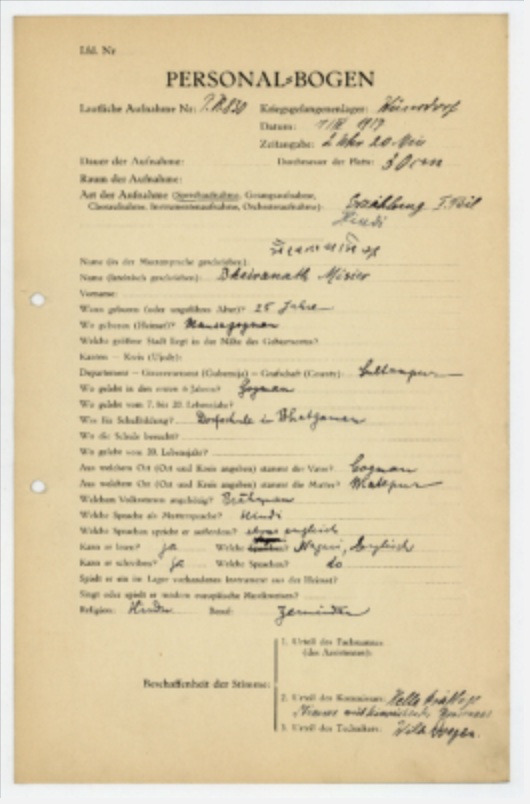 Lfd. Nr
PERSONAL-BOGEN
Lautliche Aufnahme Nr: P.K. 830 Kriegsgefangenenlager: Wünsdorf
Datum:
Zeitangabe: 2 Uhr 20 Min
Dauer der Aufnahme: Durchmesser der Platte: 30 cm
Raum der Aufnahme:
Art der Aufnahme (Sprechaufnahme, Gesangsaufnahme, Erzählung I. Teil
Choraufnahme, Instrumentenaufnahme, Orchesteraufnahme): Hindi
Name (in der Muttersprache geschrieben):
Name (lateinisch geschrieben): Misier
Vorname:
Wann geboren (oder ungefähres Alter)? 25 Jahre
Wo geboren (Heimat)?
Welche größere Stadt liegt in der Nähe des Geburtsortes?
Kanton – Kreis (Ujedz):
Departement – Gouvernement (Gubernija) – Grafschaft (County): Sultanpur
Wo gelebt in den ersten 6 Jahren? Gogman
Wo gelebt vom 7. bis 20. Lebensjahr?
Was für Schulbildung? Dorfschule in
Wo die Schule besucht?
Wo gelebt vom 20. Lebensjahr?
Aus welchem Ort (Ort und Kreis angeben) stammt der Vater? Gogman
Aus welchem Ort (Ort und Kreis angeben) stammt die Mutter?
Welchem Volksstamm angehörig? Brahman
Welche Sprache als Muttersprache? Hindi
Welche Sprachen spricht er außerdem? etwas englisch
Kann er lesen? ja Welche Sprachen? Nagari, Englisch
Kann er schreiben? ja Welche Sprachen? do
Spielt er ein im Lager vorhandenes Instrument aus der Heimat?
Singt oder spielt er modern europäische Musikweisen?
Religion: Hindu Beruf: Zemindar
1. Urteil des Fachmannes
(des Assistenten):
Beschaffenheit der Stimme:
2. Urteil des Kommissars: Helle kräftige
Stimme mit
3. Urteil des Technikers: Wilh. Doegen.